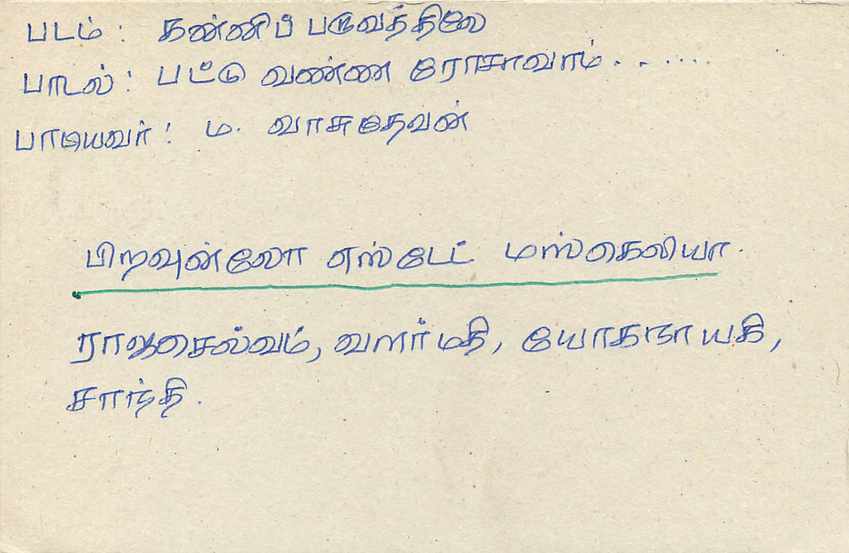 படம் : கன்னிப் பருவத்திலே
பாடல் : பட்டு வண்ண ரோசாவாம் . . . . . . .
பாடியவர் : ம. வாசுதேவன்
பிறவுன்லோ எஸ்டேட் மஸ்கெலியா.
ராஜசெல்வம், வளர்மதி, யோகநாயகி,
சாந்தி.